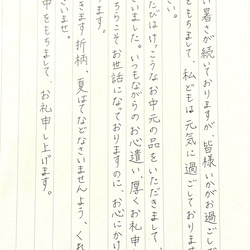 い暑さが続いておりますが、皆様いかがお過ごし
をもちまして、私どもは元気に過ごしておりま
さい。
たびは、けっこうなお中元の品をいただきまして、
いました。いつもながらのお心遣い、厚くお礼申
ちらこそお世話になっておりますのに、お心にかけ
ます。
きます折柄、夏ばてなどなさいませんよう、くれ
さいませ。
中をもちまして、お礼申し上げます。